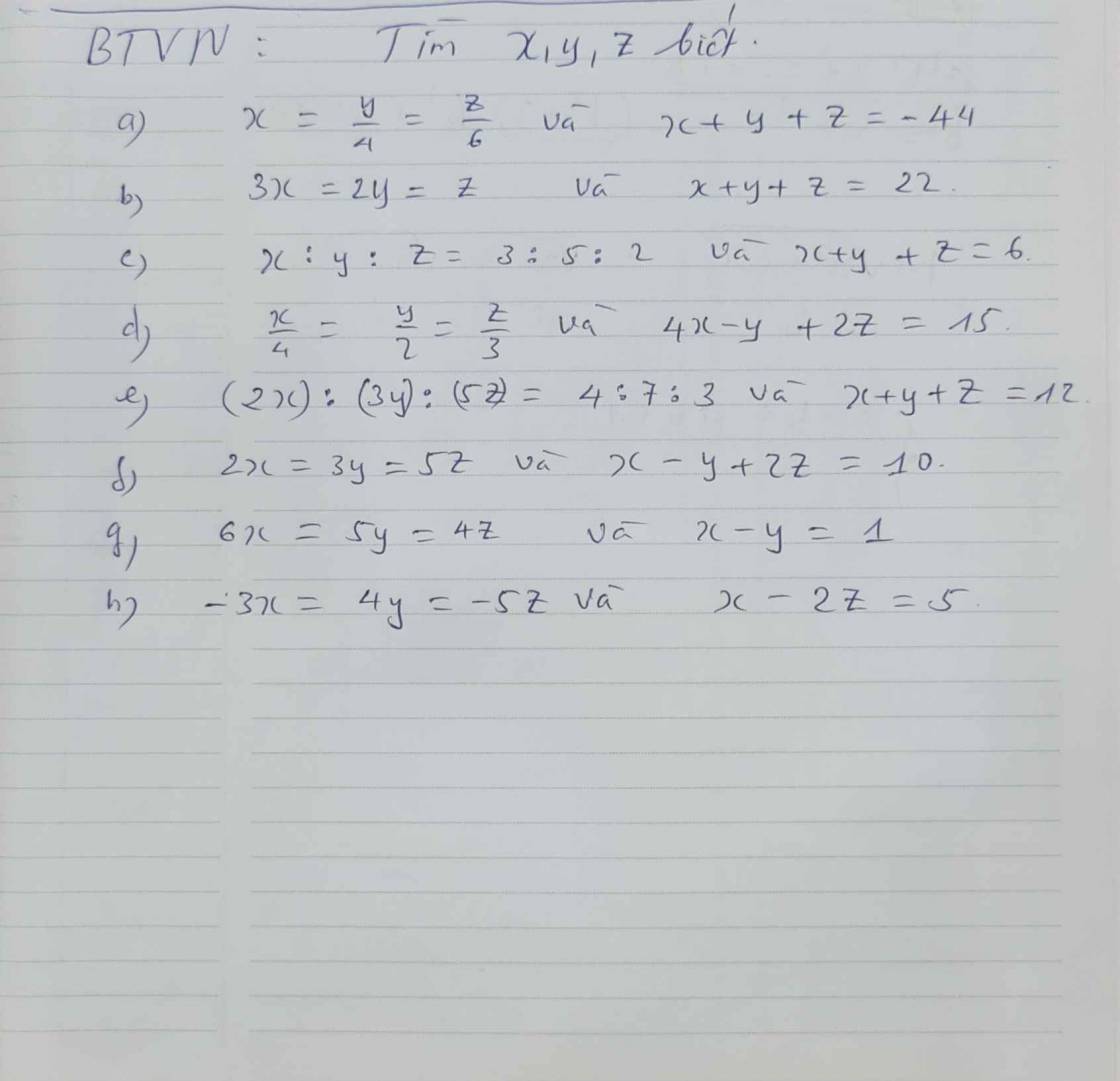 BTVN : Tìm x, y, z biết.
a) x = y/4 = z/6 và x + y + z = -44
b) 3x = 2y = z và x + y + z = 22.
c) x : y : z = 3 : 5 : 2 và x + y + z = 6.
d) x/4 = y/2 = z/3 và 4x - y + 2z = 15.
e) (2x) : (3y) : (5z) = 4 : 7 : 3 và x + y + z = 12.
f) 2x = 3y = 5z và x - y + 2z = 10.
g) 6x = 5y = 4z và x - y = 1
h) -3x = 4y = -5z và x - 2z = 5.